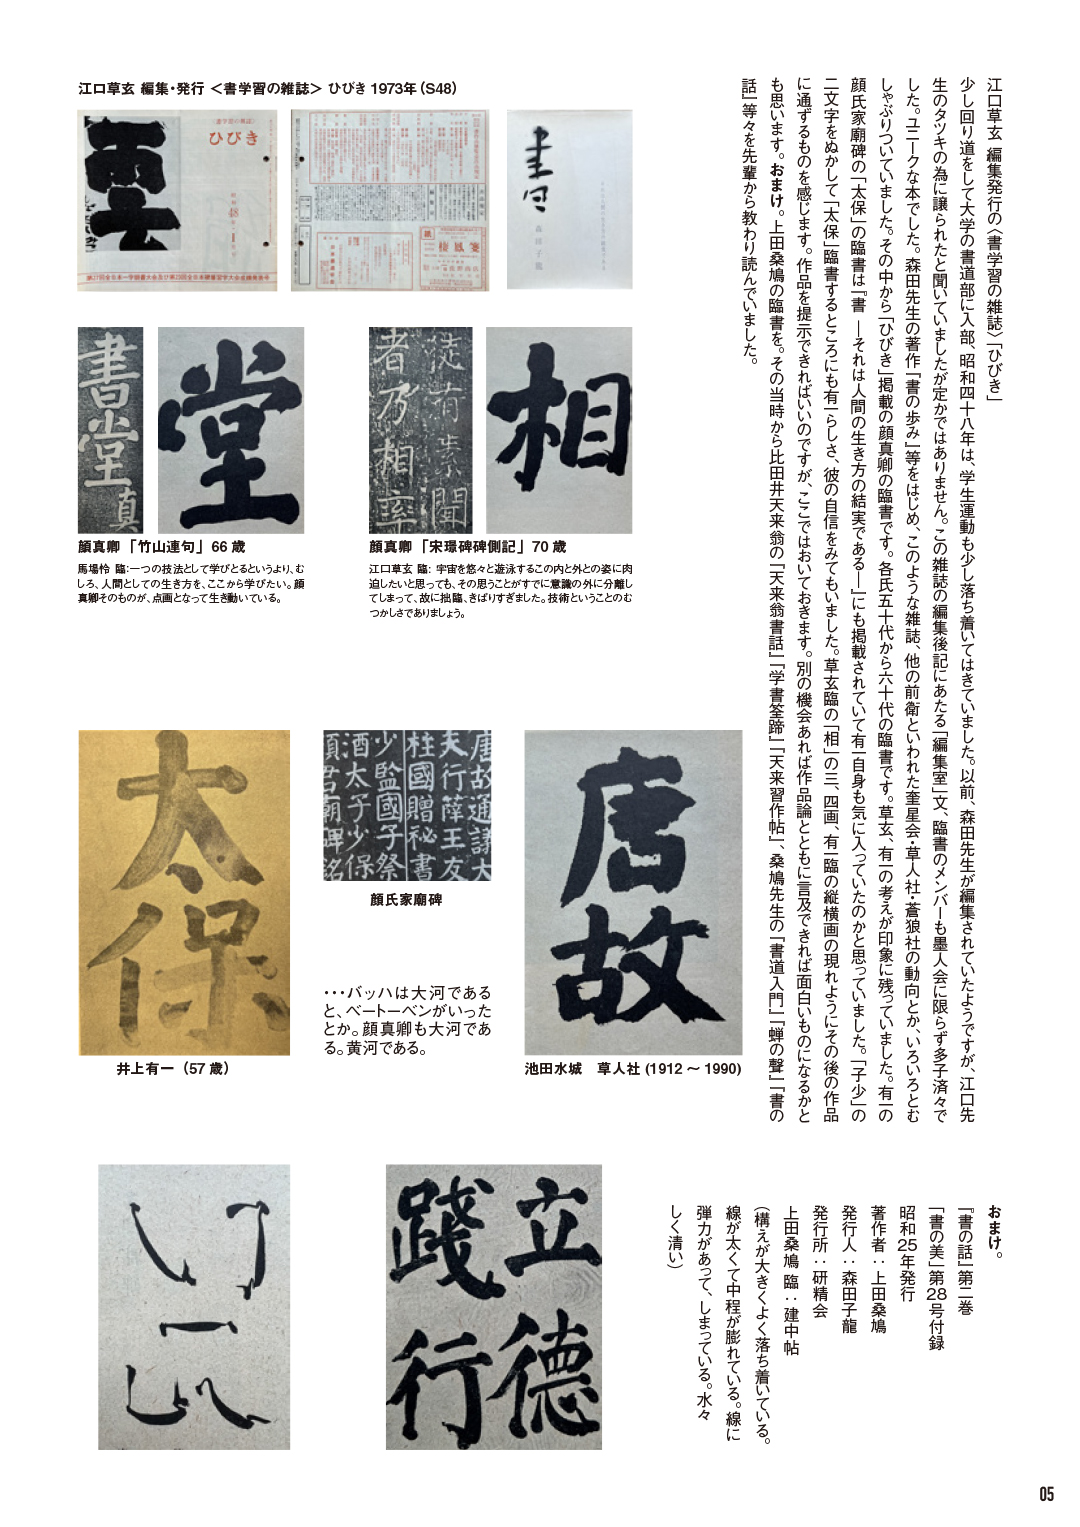 江口草玄 編集・発行 ＜書学習の雑誌＞ ひびき 1973年（S48）
＜書学習の雑誌＞
ひびき
昭和
48
第27回全日本一学観書大会及び第23回全日本硬筆習字大会成績発表号
書
森田子龍
書堂
真
堂
顔真卿 「竹山連句」 66 歳
馬場怜 臨：一つの技法として学びとるというより、む
しろ、人間としての生き方を、ここから学びたい。顔
真卿そのものが、点画となって生き動いている。
者乃相率
相
顔真卿 「宋璟碑碑側記」 70 歳
江口草玄 臨： 宇宙を悠々と遊泳するこの内と外との姿に肉
迫したいと思っても、その思うことがすでに意識の外に分離し
てしまって、故に拙臨、きばりすぎました。技術ということのむ
つかしさでありましょう。
江口草玄 編集発行の〈書学習の雑誌〉「ひびき」
少し回り道をして大学の書道部に入部、昭和四十八年は、学生運動も少し落ち着いてはきていました。以前、森田先生が編集されていたようですが、江口先
生のタツキの為に譲られたと聞いていましたが定かではありません。この雑誌の編集後記にあたる「編集室」文、臨書のメンバーも墨人会に限らず多子済々で
した。ユニークな本でした。森田先生の著作「書の歩み」等をはじめ、このような雑誌、他の前衛といわれた奎星会・草人社・蒼狼社の動向とか、いろいろとむ
しゃぶりついていました。その中から「ひびき」掲載の顔真卿の臨書です。各氏五十代から六十代の臨書です。草玄、有一の考えが印象に残っていました。有一の
顔氏家廟碑の「太保」の臨書は『書 ―それは人間の生き方の結実である―』にも掲載されていて有一自身も気に入っていたのかと思っていました。「子少」の
二文字をぬかして「太保」臨書するところにも有一らしさ、彼の自信をみてもいました。草玄臨の「相」の三、四画、有一臨の縦横画の現れようにその後の作品
に通ずるものを感じます。作品を提示できればいいのですが、ここではおいておきます。別の機会あれば作品論とともに言及できれば面白いものになるかと
も思います。おまけ。上田桑鳩の臨書を。その当時から比田井天来翁の『天来翁書話』『学書筌蹄』『天来習作帖』、桑鳩先生の『書道入門』『蝉の聲』『書の
話』等々を先輩から教わり読んでいました。
太保
井上有一（57 歳）
唐故通議大
夫行薛王友
柱國贈秘書
少監國子祭
酒太子少保
顔君廟碑銘
顔氏家廟碑
・・・バッハは大河である
と、ベートーベンがいった
とか。顔真卿も大河であ
る。黄河である。
唐故
池田水城　草人社 (1912 ～ 1990)
立德
踐行
おまけ。
『書の話』第二巻
「書の美」第28号付録
昭和25年発行
著作者：上田桑鳩
発行人：森田子龍
発行所：研精会
上田桑鳩 臨：建中帖
（構えが大きくよく落ち着いている。
線が太くて中程が膨れている。線に
弾力があって、しまっている。水々
しく清い）
05